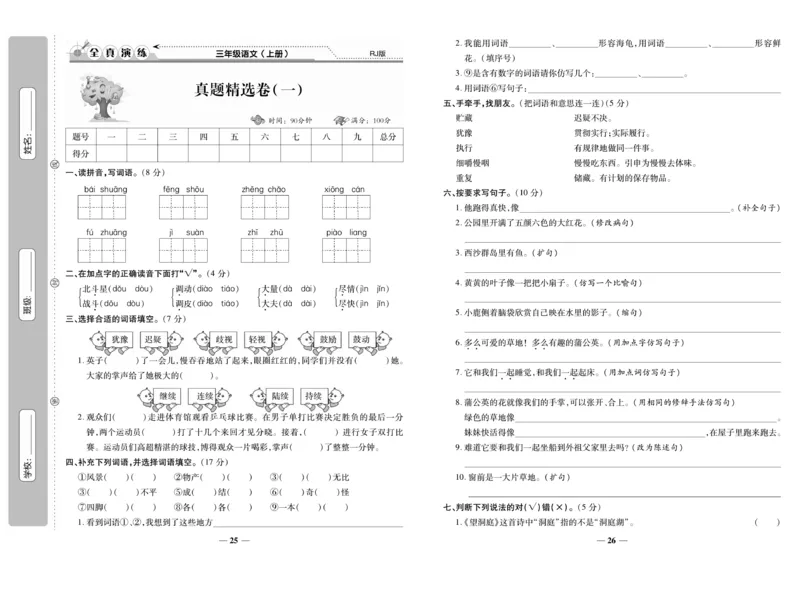 姓名：
班级：
学校：
密
封
线
全真演练
三年级语文（上册）
RJ版
真题精选卷（一）
时间：90分钟 满分：100分
题号 一 二 三 四 五 六 七 八 九 总分
得分
一、读拼音，写词语。（8分）
bái shuāng fēng shōu zhēng chǎo xiōng cán
fú zhuāng jì suàn zhī zhū piào liang
二、在加点字的正确读音下面打“√”。（4分）
北斗星(dǒu dòu) 调动(diào tiáo) 大量(dà dài) 尽情(jìn jǐn)
战斗(dǒu dòu) 调皮(diào tiáo) 大夫(dà dài) 尽快(jìn jǐn)
三、选择合适的词语填空。（7分）
犹豫 迟疑 歧视 轻视 鼓励 鼓动
1. 英子( )了一会儿，慢吞吞地站了起来，眼圈红红的，同学们并没有( )她。
大家的掌声给了她极大的( )。
继续 连续 陆续 持续
2. 观众们( )走进体育馆观看乒乓球比赛。在男子单打比赛决定胜负的最后一分
钟，两个运动员( )打了十几个来回才见分晓。接着，( )进行女子双打比
赛。运动员们高超精湛的球技，博得观众一片喝彩，掌声( )了整整一分钟。
四、补充下列词语，并选择词语填空。（17分）
①风景( )( ) ②物产( )( ) ③( )( )无比
③( )( )不平 ⑤成( )结( ) ⑥( )奇( )怪
⑦四脚( )( ) ⑧各( )各( ) ⑨一本( )( )
1. 看到词语①、②，我想到了这些地方
— 25 —
2. 我能用词语 、 形容海龟，用词语 、 形容鲜
花。（填序号）
3. ⑨是含有数字的词语请你仿写几个： 、 。
4. 用词语⑥写句子：
五、手牵手，找朋友。（把词语和意思连一连）（5分）
贮藏 迟疑不决。
犹豫 贯彻实行；实际履行。
执行 有规律地做同一件事。
细嚼慢咽 慢慢吃东西。引申为慢慢去体味。
重复 储藏。有计划的保存物品。
六、按要求写句子。（10分）
1. 他跑得真快，像 。（补全句子）
2. 公园里开满了五颜六色的大红花。（修改病句）
3. 西沙群岛里有鱼。（扩句）
4. 黄黄的叶子像一把把小扇子。（仿写一个比喻句）
5. 小鹿侧着脑袋欣赏自己映在水里的影子。（缩句）
6. 多么可爱的草地！多么有趣的蒲公英。（用加点字仿写句子）
7. 它和我们一起睡觉，和我们一起起床。（用加点词仿写句子）
8. 蒲公英的花就像我们的手掌，可以张开、合上。（用相同的修辞手法仿写句）
绿色的草地像 。
妹妹快活得像 ，在屋子里跑来跑去。
9. 难道它要和我们一起坐船到外祖父家里去吗？（改为陈述句）
10. 窗前是一大片草地。（扩句）
七、判断下列说法的对（√）错（×）。（5分）
1.《望洞庭》这首诗中“洞庭”指的不是“洞庭湖”。 ( )
— 26 —